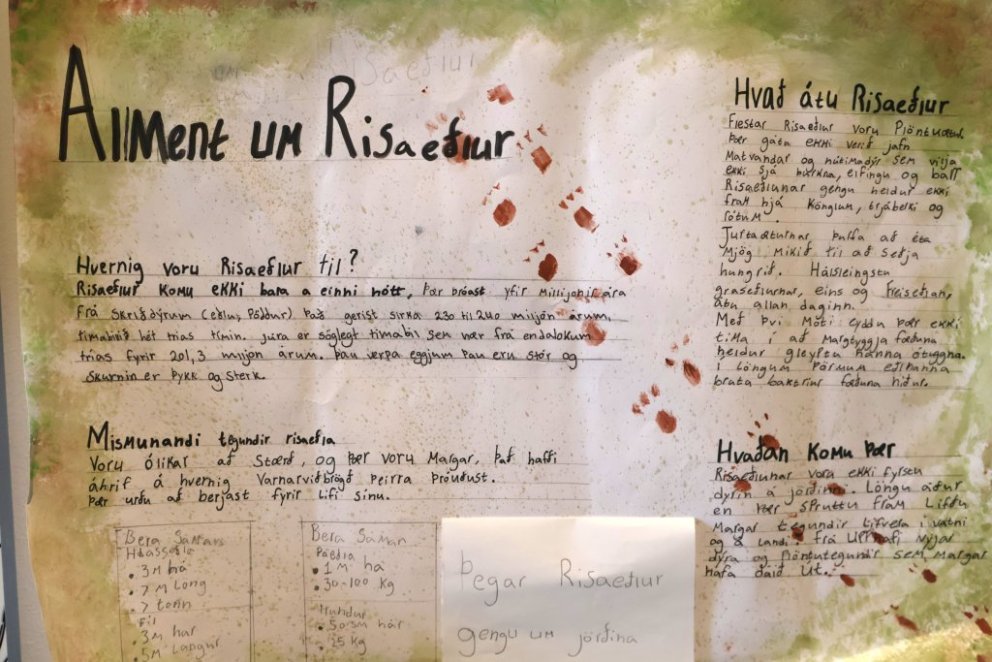 Allment um Risaeðlur
Hvernig voru Risaeðlur til?
Risaeðlur komu ekki bara a einni nótt, Þær þróast yfir millijónir ára
frá skriðdýrum (eðlu, Pöddur) Það gerist sirka 230 til 240 miljón árum,
timabinið hét trias timin. Júra er söglegt timabil sem vær frá endalokum
trias fyrir 201,3 miljon árum. Þau verpa eggjum Þau eru stór og
skurnin er Þykk og sterk.
Mismunandi tegundir risaeðla
Voru ólikar að stærð, og Þær voru margar. Það hafði
áhrif á hvernig varnarviðbrögð Þeirra Þróuðust.
Þær urðu að berjast fyrir lifi sinu.
Bera saman
• 3 M há
• 7 M Long
• 7 tonn
Fíll
3M har
5M Langur
Bera saman
• 1 M há
• 30-100 kg
Hundur
• 25 kg
Þegar Risaeðlur
gengu um jörðina
Hvað átu Risaeðlur
Flestar Risaeðlur voru Plöntuætur
Þær gáta ekki verið jafn
Matvandar og nútimadýr sem vilja
ekki sjá burkna, elfingu og barr
Risaeðlunar gengu heldur ekki
fram hjá Könglum, trjáberki og
rótum.
Jurtaæturnar Þurfa að éta
Mjög mikið til að seðja
hungrið. Hálsleingstu
graseðlurnar, eins og freiseðlan,
átu allan daginn.
Með Þvi Móti eyddu Þær ekki
tima í að margtyggja fæðuna
heldur gleyptu hanna ótuggna.
I Löngum Þörmum eðlnanna
brutu bakteriur fæðuna niður.
Hvaðan komu Þær
Risaeðlunar voru ekki fyrstu
dyrin á jörðinni. Löngu áður
en Þær spruttu fram Lifðu
Margar tegundir lifvera i vatni
og á landi. frá upphafi nýjar
dýra og Plöntutegundir sem margar
hafa dáið út.